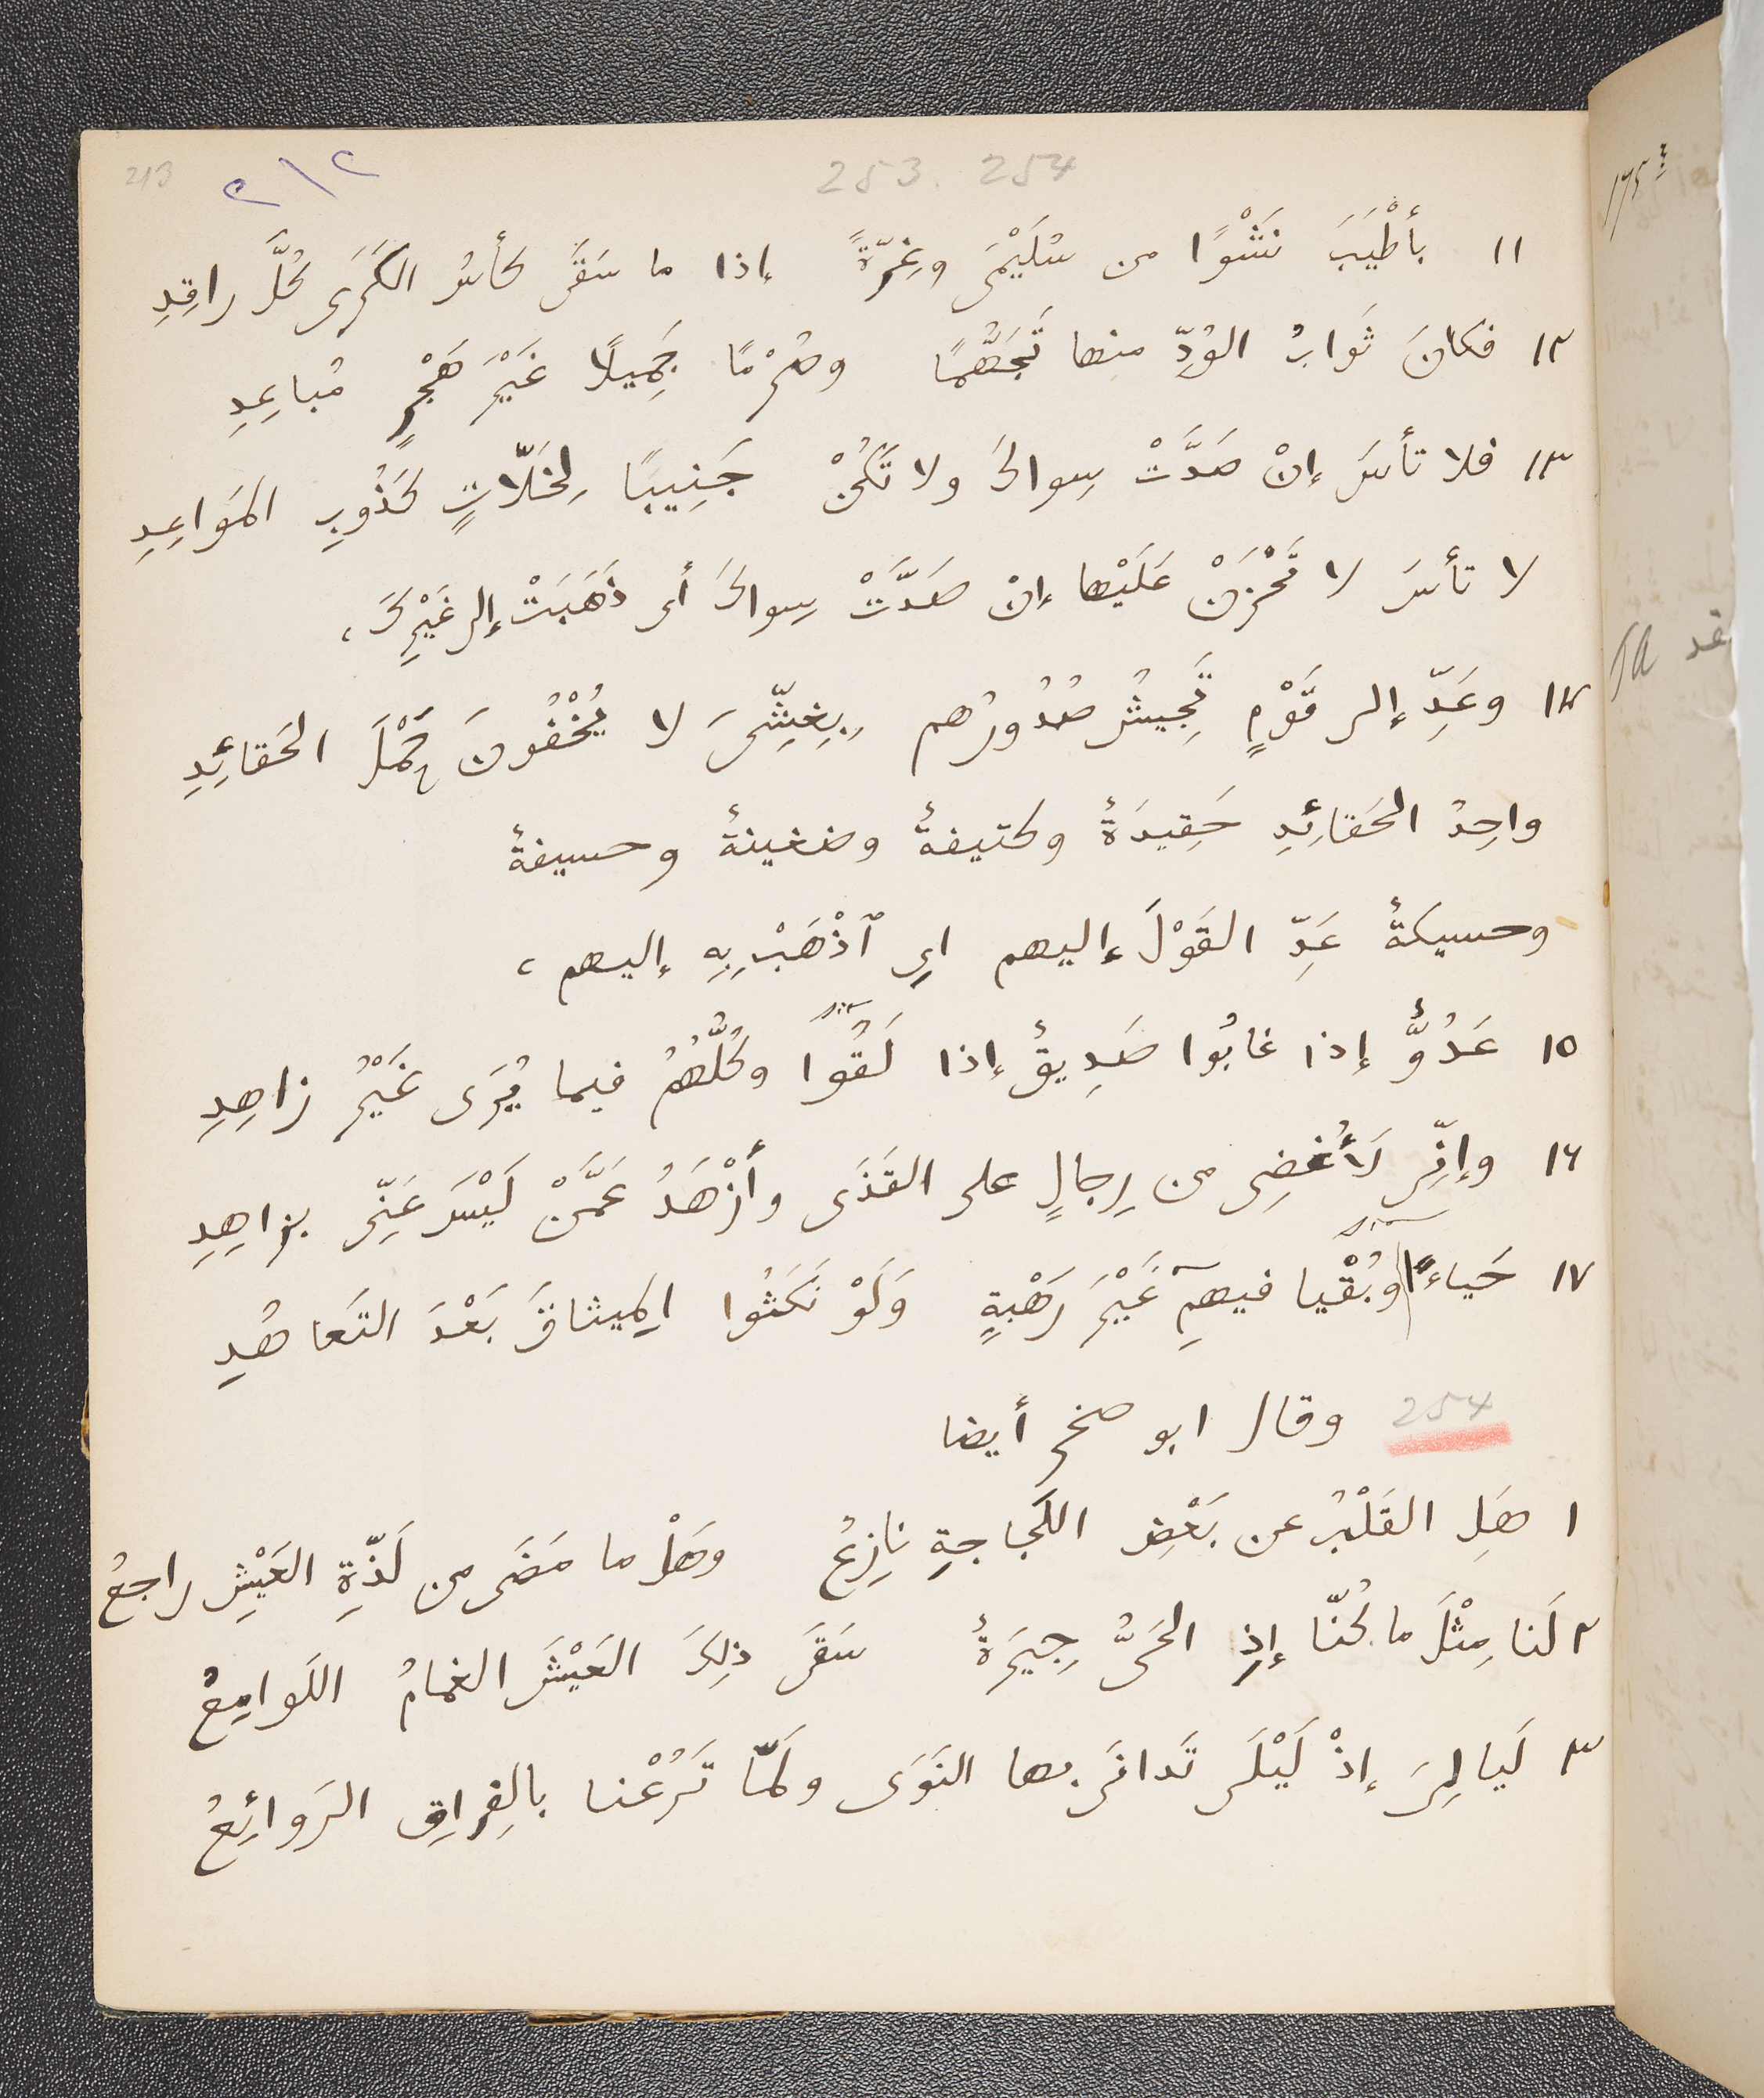 213 ٢١٢ 253. 254
١١ بأَطْيَبَ نَشْوًا من سُلَيْمَى وغِرّةً إذا ما سَقَى كأسُ الكَرَى كُلَّ راقِدِ
١٢ فكانَ ثَوابُ الوُدِّ منها تَجَهُّمًا وصُرْمًا جَمِيلًا غَيْرَ هَجْرٍ مُباعِدِ
١٣ فلا تأسَ إنْ صَدَّتْ سِواكَ ولا تَكُنْ جَنِيبًا لِخَلّاتٍ كَذُوبِ المَواعِدِ
لا تأسَ لا تَحْزَنْ عَلَيْها إنْ صَدَّتْ سِواكَ أى ذَهَبَتْ إلى غَيْرِكَ،
١٤ وعَدِّ إلى قَوْمٍ تَجِيشُ صُدُورُهم بِغِشِّىَ لا يُخْفُونَ حَمْلَ الحَقائِدِ
واحِدُ الحَقائِدِ حَقِيدَةٌ وكتيفةٌ وضغينةٌ وحسيفةٌ
وحسيكةٌ عَدِّ القَوْلَ إليهم اى ٱذْهَبْ بِهِ إليهم،
١٥ عَدُوٌّ إذا غابُوا صَدِيقٌ إذا لَقُوا وكُلُّهُمُ فيما يُرَى غَيْرُ زاهِدِ
١٦ وإنِّى لَأُغضِى من رِجالٍ على القَذَى وأَزْهَدُ عَمَّنْ لَيْسَ عَنِّى بزاهِدِ
١٧ حَياءً وبُقْيا فيهِم غَيْرَ رَهْبةٍ وَلَوْ نَكَثُوا الميثاقَ بَعْدَ التَعاهُدِ
254 وقال ابو صخر أيضا
١ هَلِ القَلْبُ عن بَعْضِ اللَجاجةِ نازِعُ وهَلْ ما مَضَى من لَذّةِ العَيْشِ راجعُ
٢ لَنا مِثْلَ ما كُنّا إذِ الحَىُّ جِيرَةٌ سَقَى ذلِكَ العَيْشَ الغمامُ اللَوامِعُ
٣ لَيالِىَ إذْ لَيْلَى تَدانَى بها النَوَى ولَمّا تَرُعْنا بالفِراقِ الرَوائِعُ